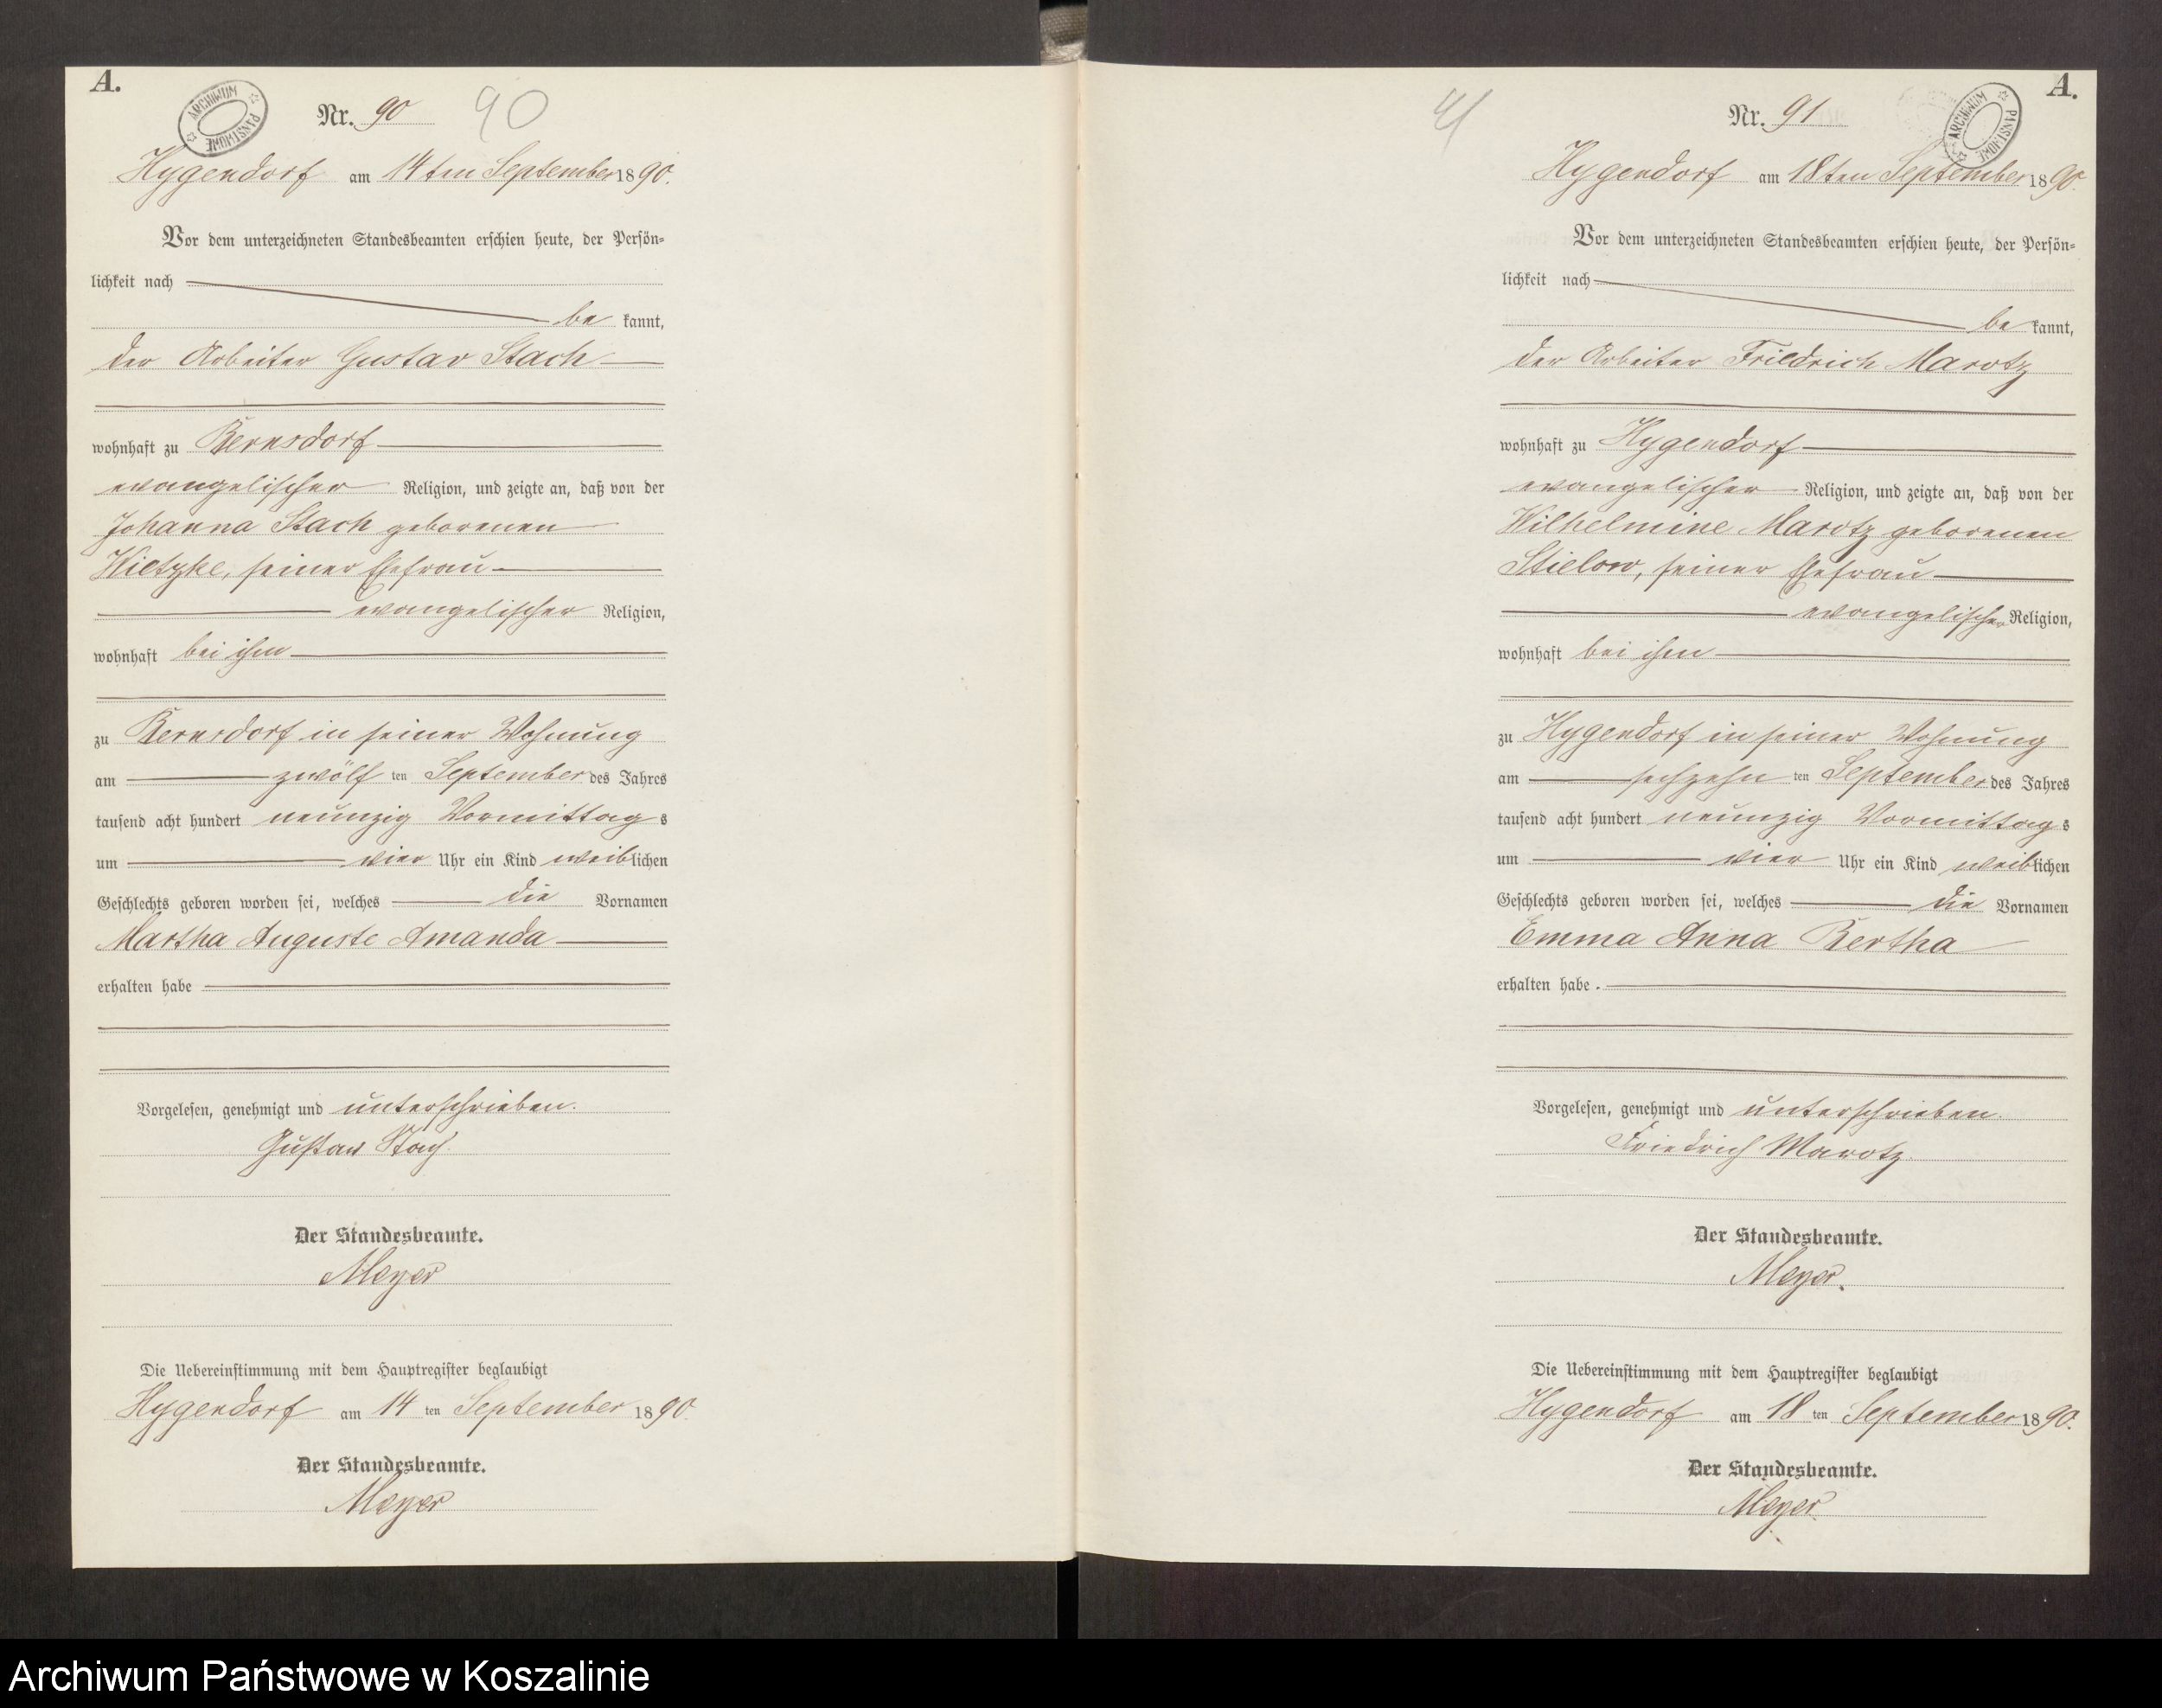 A.
ARCHIWUM PAŃSTWOWE
Nr. 90
90
Hygendorf am 14ten September 1890.
Vor dem unterzeichneten Standesbeamten erschien heute, der Persön-
lichkeit nach
be kannt,
der Arbeiter Gustav Stach
wohnhaft zu Bernsdorf
evangelischer Religion, und zeigte an, daß von der
Johanna Stach geborenen
Kietzke, seiner Ehefrau
evangelischer Religion,
wohnhaft bei ihm
zu Bernsdorf in seiner Wohnung
am zwölf ten September des Jahres
tausend acht hundert neunzig Vormittag s
um vier Uhr ein Kind weiblichen
Geschlechts geboren worden sei, welches die Vornamen
Martha Auguste Amanda
erhalten habe
Vorgelesen, genehmigt und unterschrieben.
Gustav Stach
Der Standesbeamte.
Meyer
Die Uebereinstimmung mit dem Hauptregister beglaubigt
Hygendorf am 14 ten September 1890.
Der Standesbeamte.
Meyer
A.
ARCHIWUM PAŃSTWOWE
Nr. 91
Hygendorf am 18ten September 1890.
Vor dem unterzeichneten Standesbeamten erschien heute, der Persön-
lichkeit nach
be kannt,
der Arbeiter Friedrich Marotz
wohnhaft zu Hygendorf
evangelischer Religion, und zeigte an, daß von der
Wilhelmine Marotz geborenen
Stielow, seiner Ehefrau
evangelischer Religion,
wohnhaft bei ihm
zu Hygendorf in seiner Wohnung
am sechzehn ten September des Jahres
tausend acht hundert neunzig Vormittag s
um vier Uhr ein Kind weiblichen
Geschlechts geboren worden sei, welches die Vornamen
Emma Anna Bertha
erhalten habe.
Vorgelesen, genehmigt und unterschrieben.
Friedrich Marotz
Der Standesbeamte.
Meyer.
Die Uebereinstimmung mit dem Hauptregister beglaubigt
Hygendorf am 18 ten September 1890.
Der Standesbeamte.
Meyer.
Archiwum Państwowe w Koszalinie